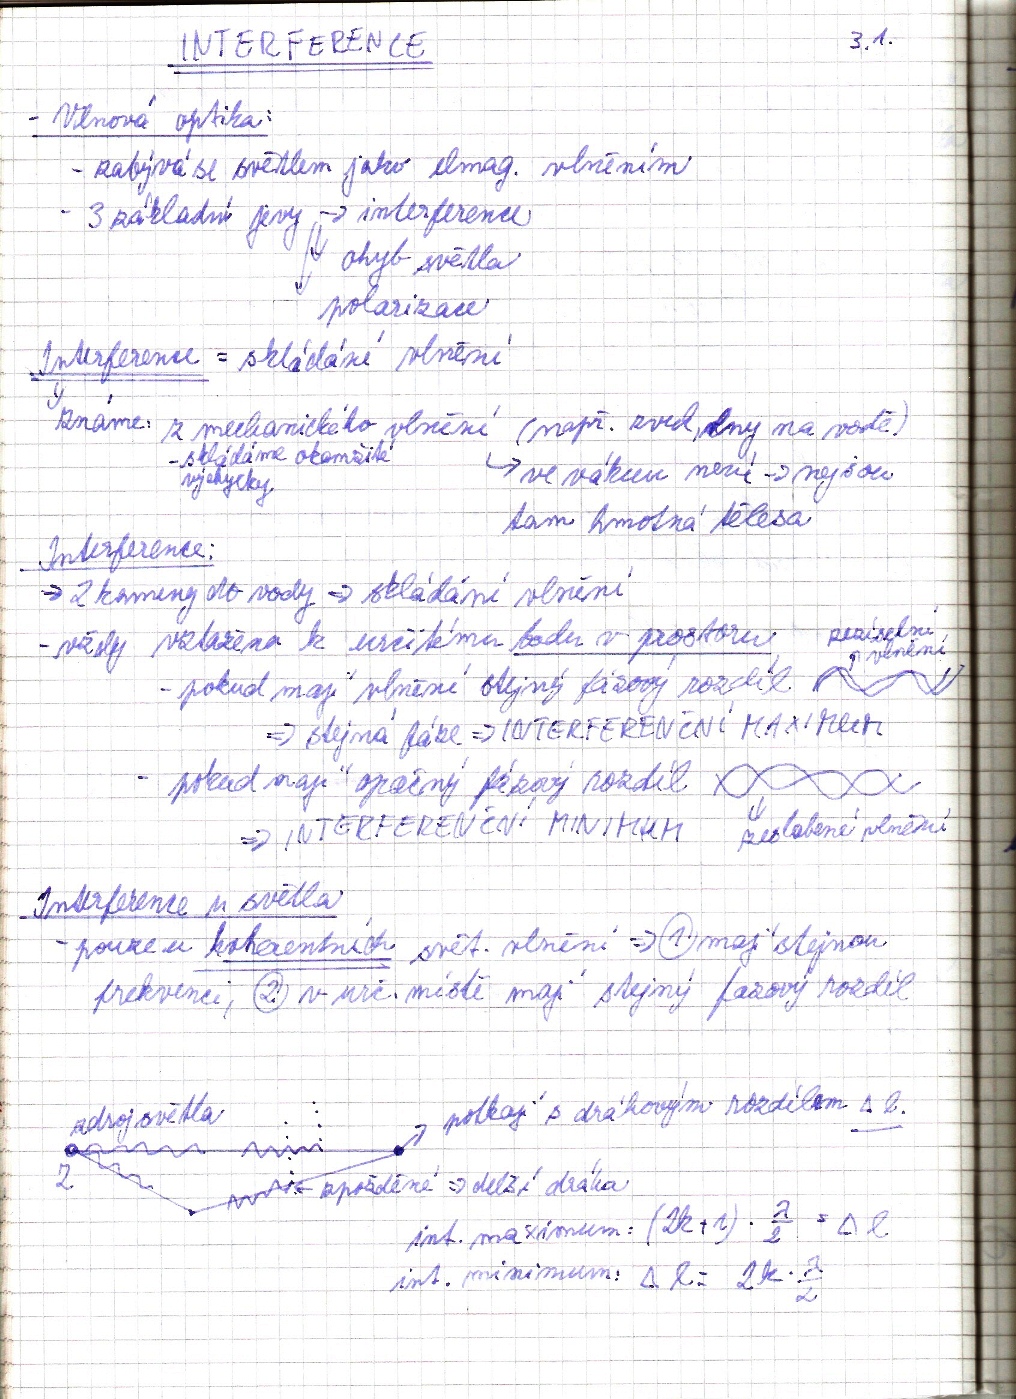 INTERFERENCE 3.1.
- Vlnová optika:
- zabývá se světlem jako elmag. vlněním
- 3 základní jevy → interference
ohyb světla
polarizace
Interference = skládání vlnění
známe: z mechanického vlnění (např. zvuk, vlny na vodě)
- skládáme okamžité
výchylky
↳ ve vákuu není → nejsou
tam hmotná tělesa
Interference:
⇒ 2 kameny do vody ⇒ skládání vlnění
- vždy vztažena k určitému bodu v prostoru
zesílení
vlnění
- pokud mají vlnění stejný fázový rozdíl
⇒ stejná fáze ⇒ INTERFERENČNÍ MAXIMUM
- pokud mají opačný fázový rozdíl
⇒ INTERFERENČNÍ MINIMUM
zeslabené vlnění
Interference u světla
- pouze u koherentních svět. vlnění ⇒ ① mají stejnou
frekvenci, ② v urč. místě mají stejný fázový rozdíl
zdroj světla
potkají s dráhovým rozdílem Δ l.
Z
zpoždění ⇒ delší dráha
int. maximum: (2k+1) · λ/2 = Δ l
int. minimum: Δ l = 2k · λ/2